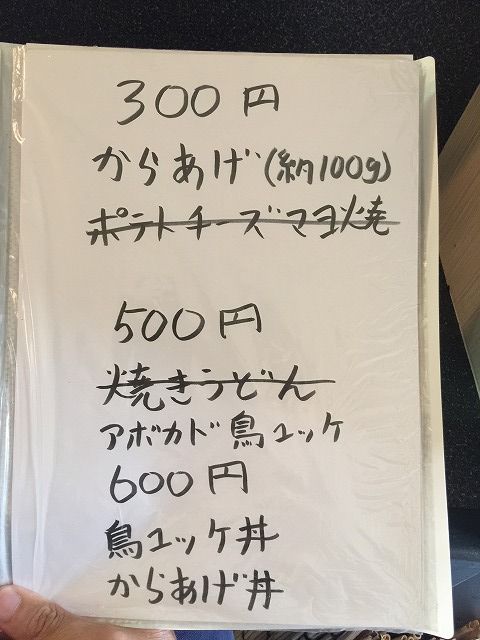 300円
からあげ(約100g)
ポテトチーズマヨ焼
500円
焼きうどん
アボカド鳥ユッケ
600円
鳥ユッケ丼
からあげ丼